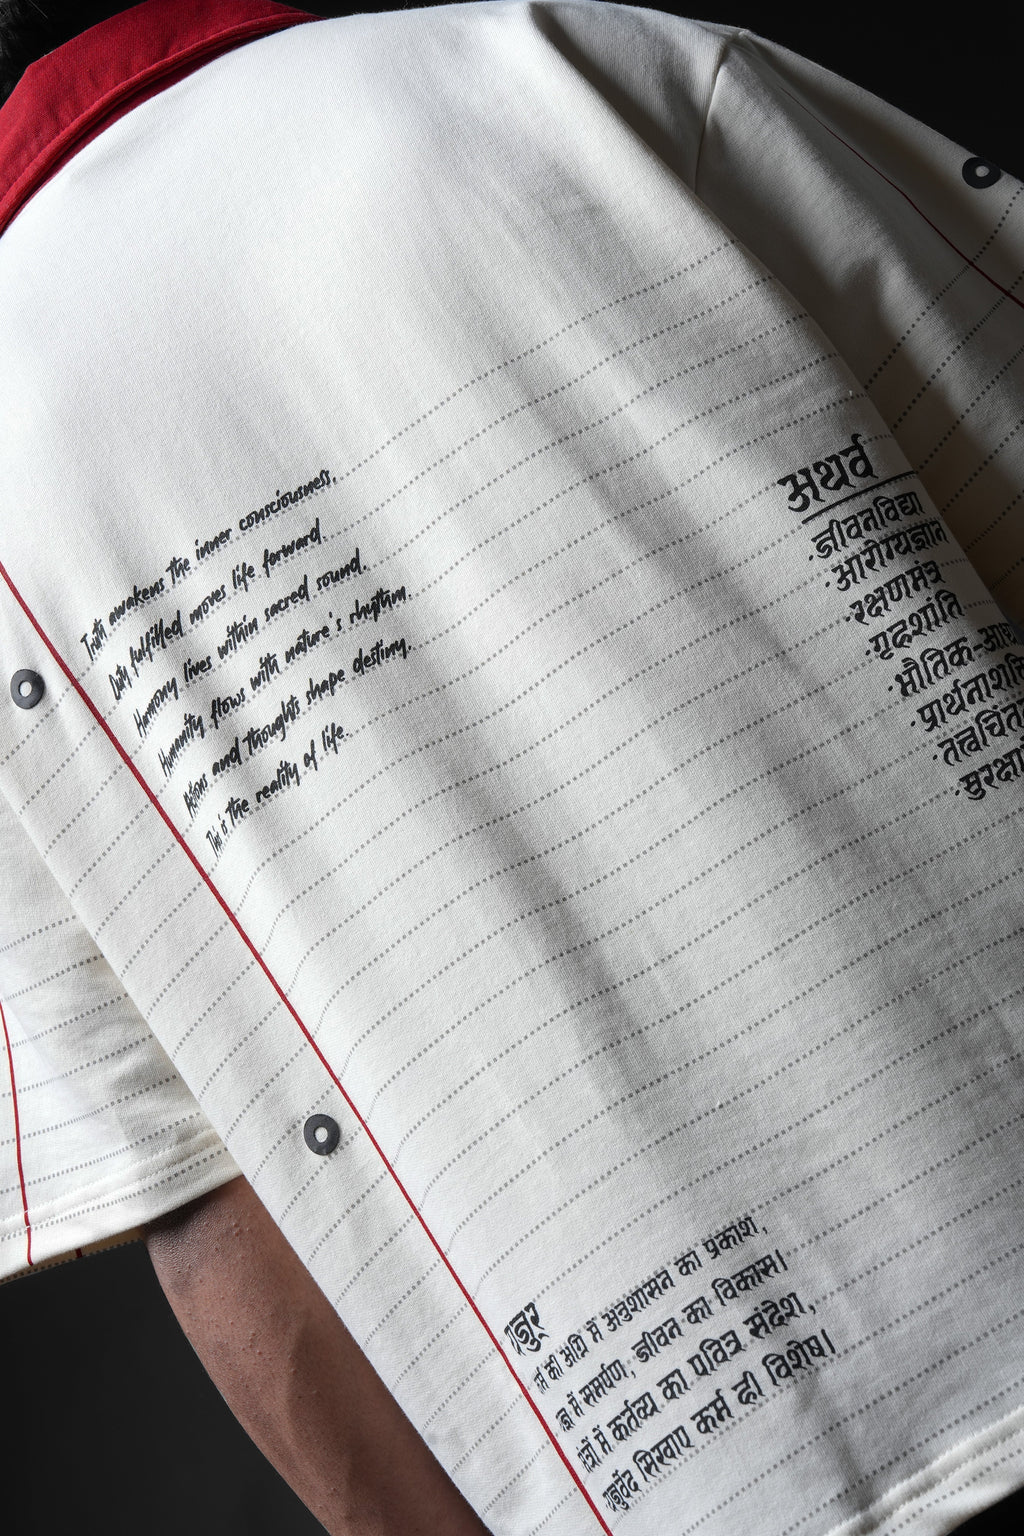 Truth awakens the inner consciousness.
Duty fulfilled moves life forward.
Harmony lives within sacred sound.
Humanity flows with nature's rhythm.
Actions and thoughts shape destiny.
This is the reality of life.
अथर्व
· जीवनविद्या
· आरोग्यज्ञान
· रक्षणमंत्र
· गृहशांति
· भौतिक-आध
· प्रार्थनाशक्ति
· तत्त्वचिंत
· सुरक्षा
यजुर्
कर्म की अग्नि में अनुशासन का प्रकाश,
यज्ञ में समर्पण, जीवन का विकास।
मंत्रों में कर्तव्य का पवित्र संदेश,
यजुर्वेद सिखाए कर्म ही विशेष।